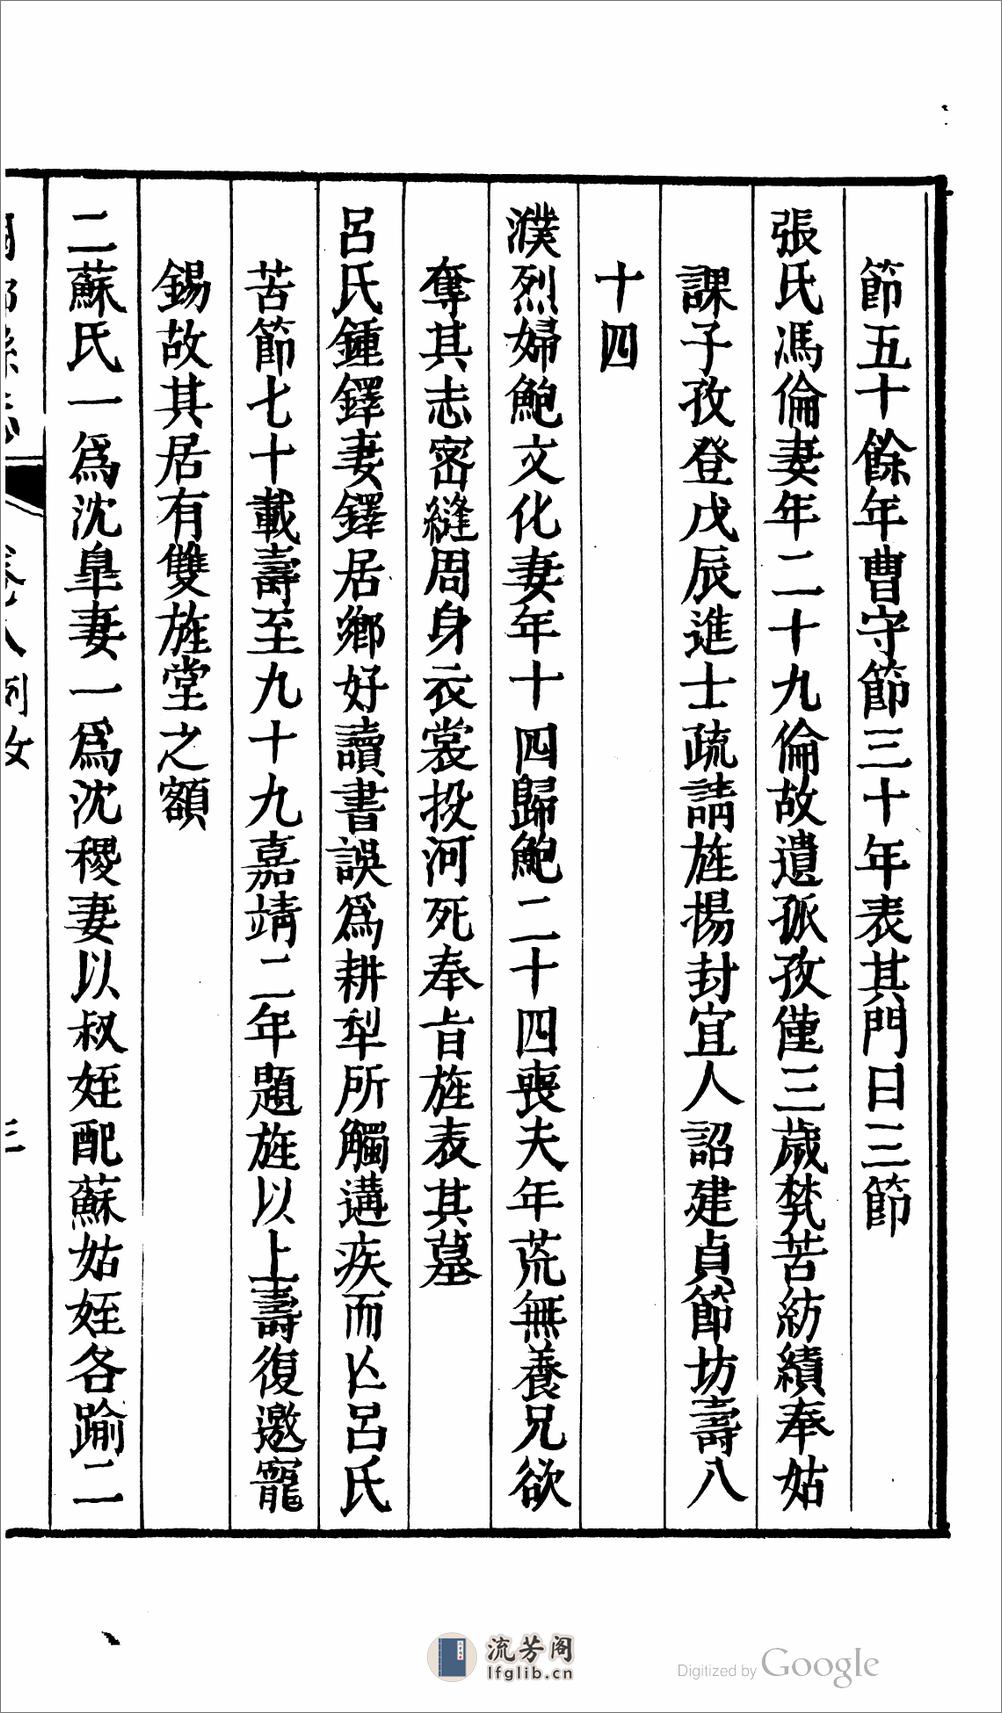 節五十餘年曹守節三十年表其門曰三節
張氏馮倫妻年二十九倫故遺孤孜僅三歲㷀苦紡績奉姑
課子孜登戊辰進士疏請旌揚封宜人詔建貞節坊壽八
十四
濮烈婦鮑文化妻年十四歸鮑二十四喪夫年荒無養兄欲
奪其志密縫周身衣裳投河死奉旨旌表其墓
呂氏鍾鐸妻鐸居鄉好讀書誤為耕犁所觸遘疾而亡呂氏
苦節七十載壽至九十九嘉靖二年題旌以上壽復邀寵
錫故其居有雙旌堂之額
二蘇氏一為沈臯妻一為沈稷妻以叔姪配蘇姑姪各踰二
流芳阁
lfglib.cn
Digitized by Google